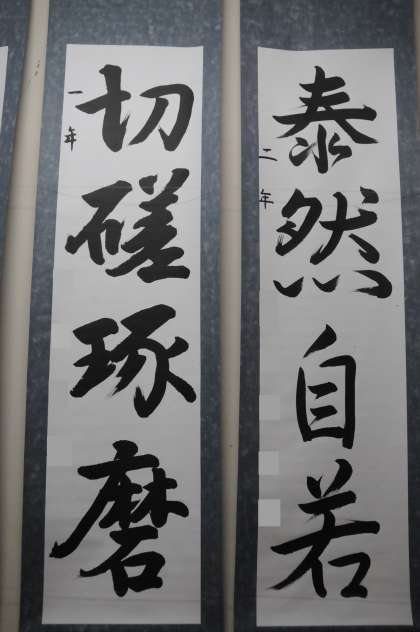 泰然自若
二年
切磋琢磨
一年